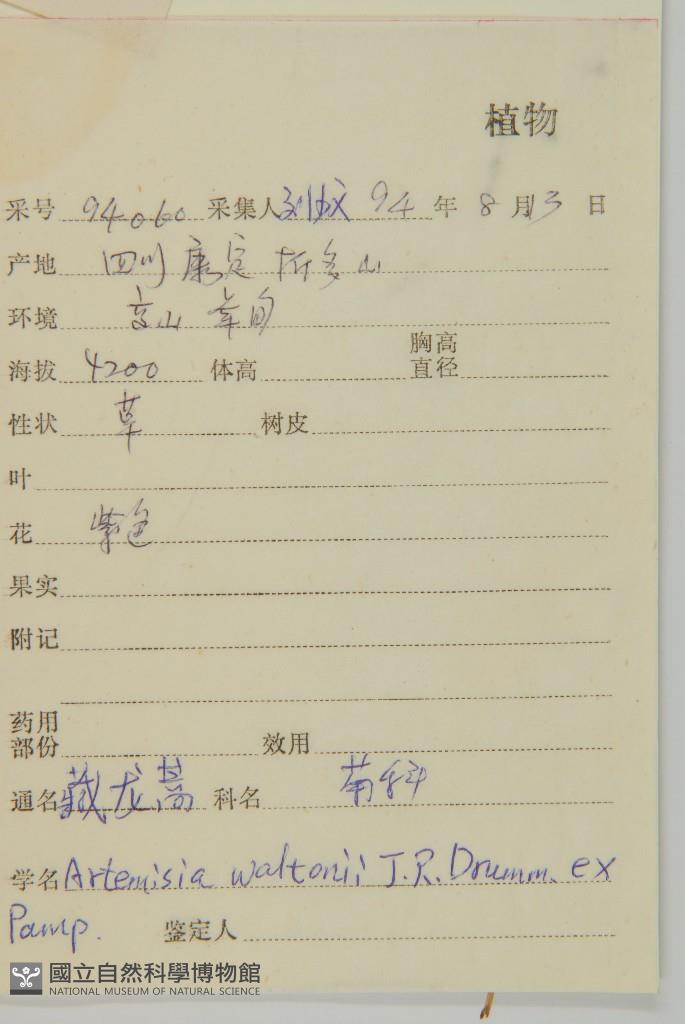 植物
采号 94060 采集人 94 年 8 月 3 日
产地 四川 康定 折多山
环境 高山 草甸
海拔 4200 体高 胸高直径
性状 草 树皮
叶
花 紫色
果实
附记
药用部份 效用
通名 藏龙蒿 科名 菊科
学名 Artemisia waltonii J.R. Drumm. ex
Pamp. 鉴定人
國立自然科學博物館
NATIONAL MUSEUM OF NATURAL SCIENCE